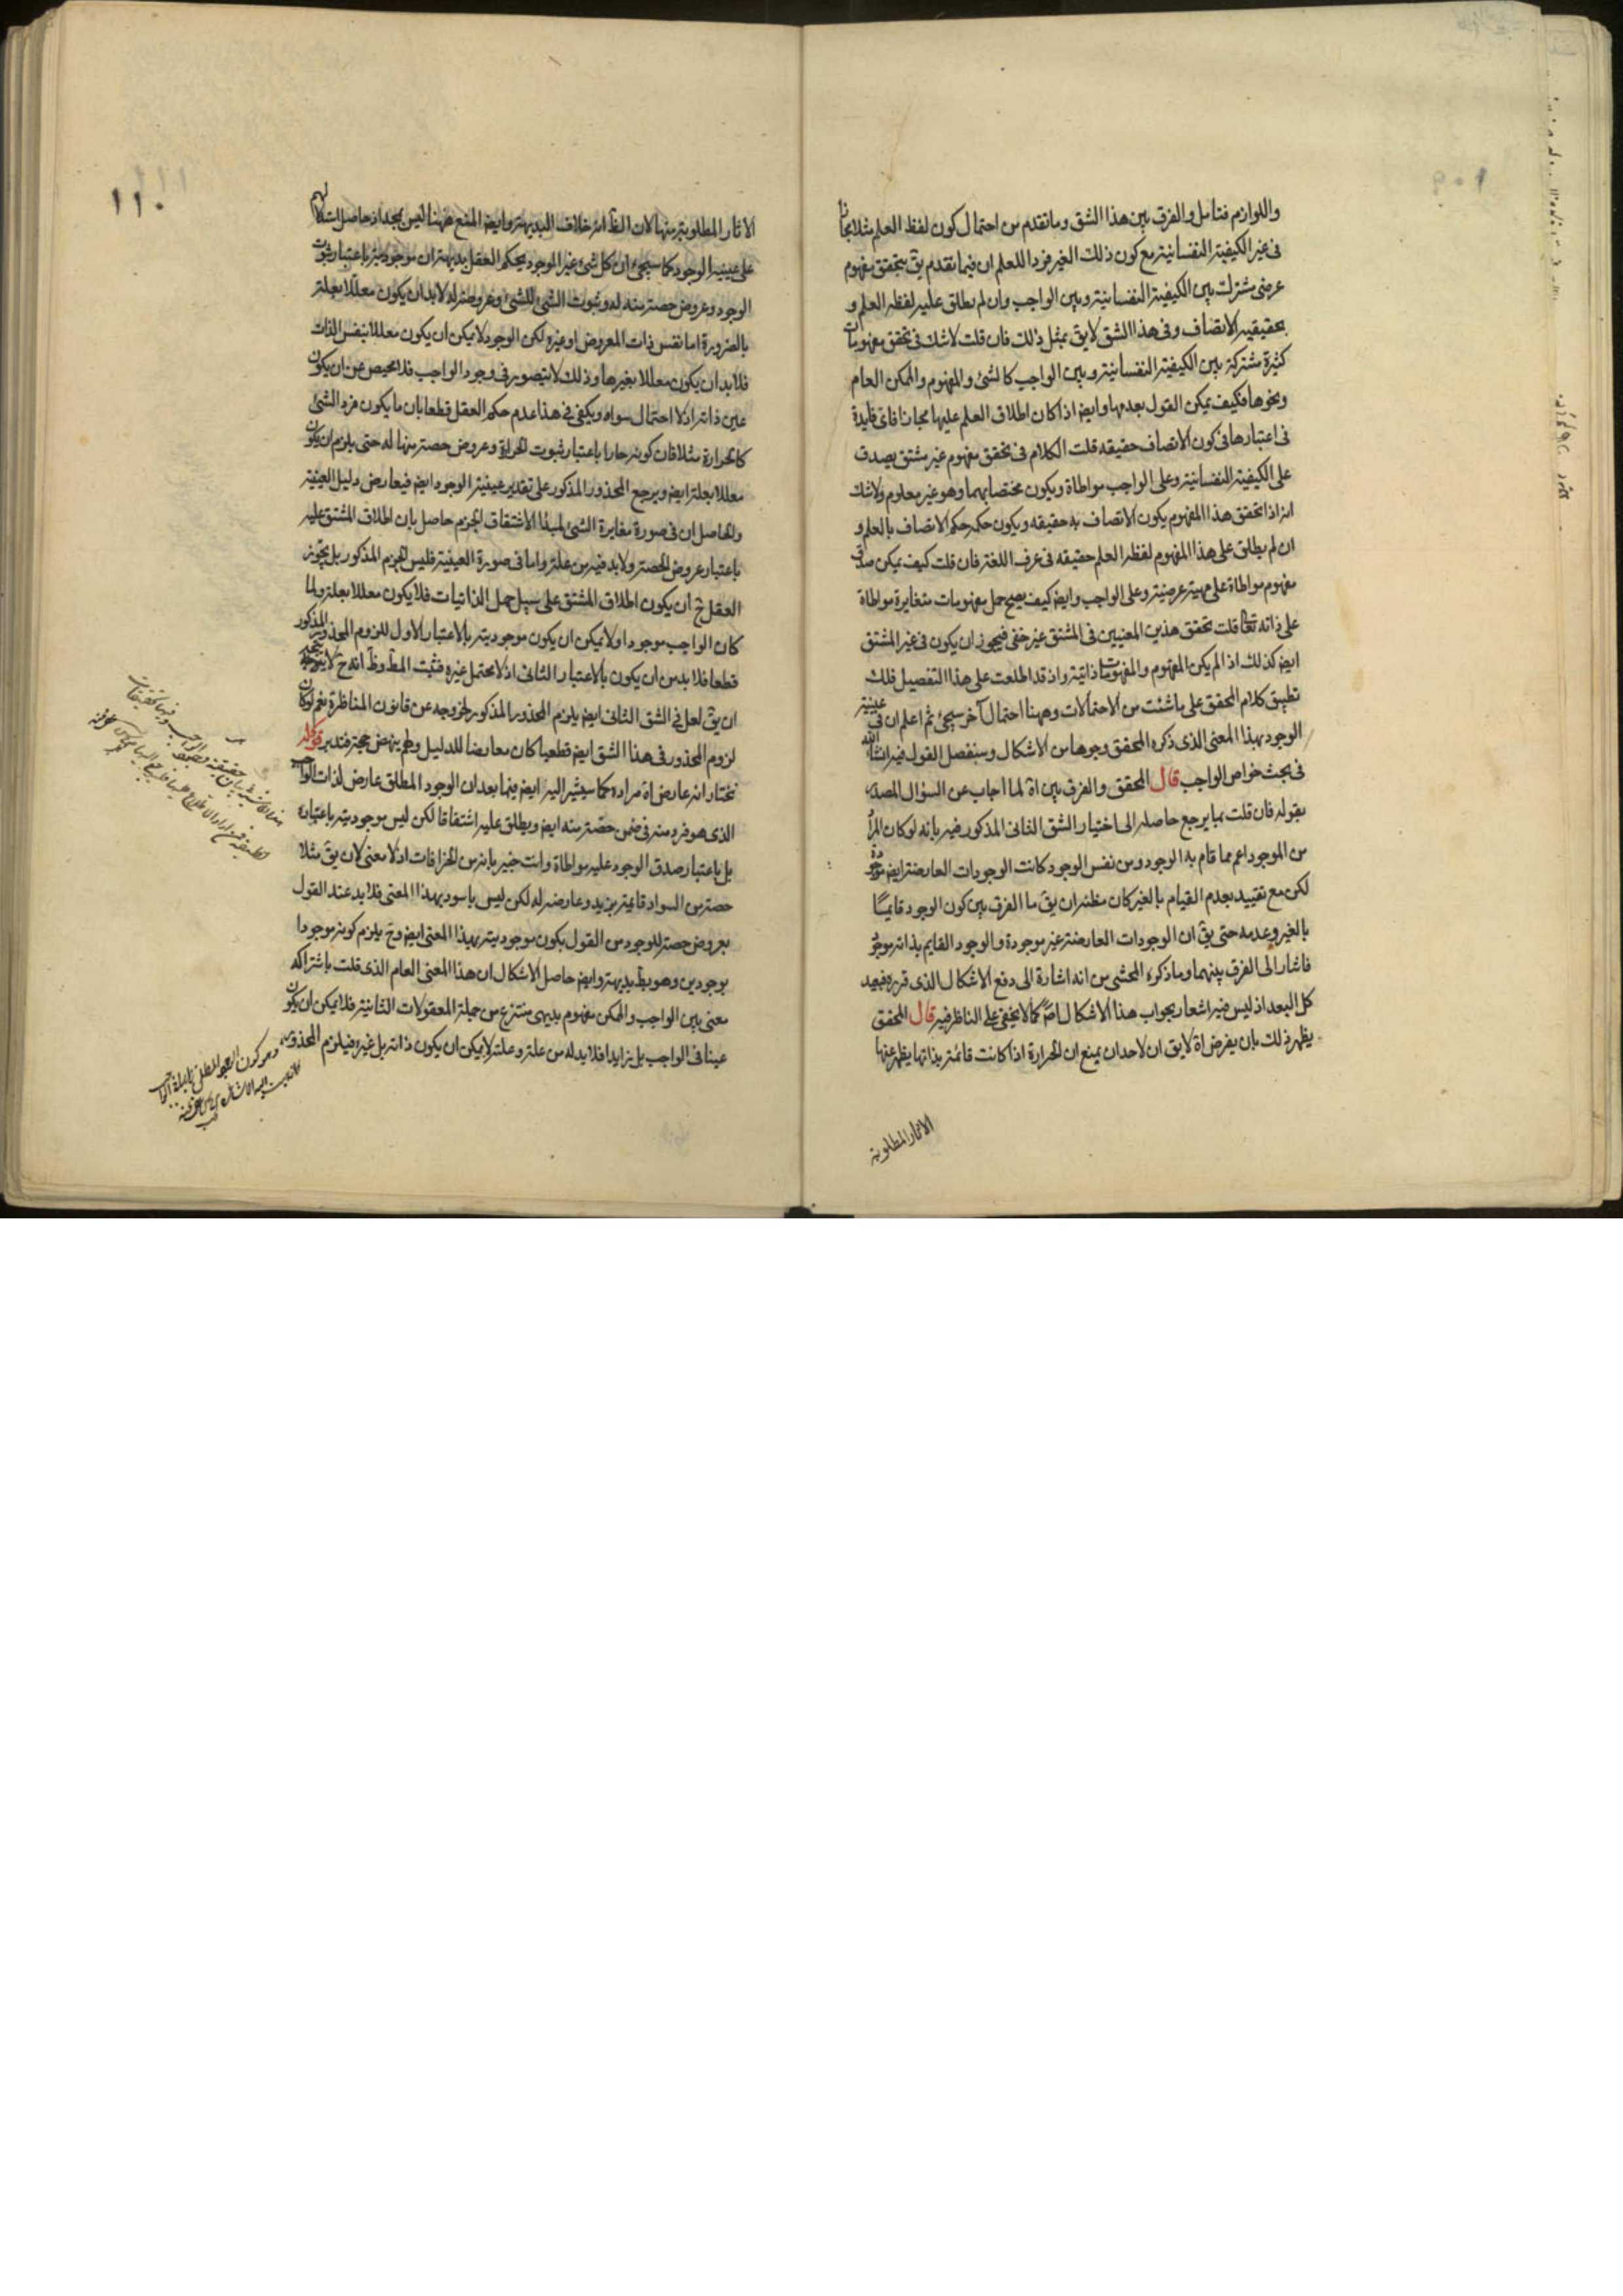 واللوازم فتامل والفرق بين هذا الشق وما تقدم من احتمال كون لفظ العلم مثلا مجازا
فى غير الكيفية النفسانية مع كون ذلك الغير فردا للعلم ان فيما تقدم يق بتحقق مفهوم
عرضى مشترك بين الكيفية النفسانية وبين الواجب وان لم يطلق عليه لفظ العلم و
بحقيقية الاتصاف وفى هذا الشق لا يق بمثل ذلك فان قلت لا شك فى تحقق مفهومات
كثيرة مشتركة بين الكيفية النفسانية وبين الواجب كالشئ والمفهوم والممكن العام
ونحوها فكيف يمكن القول بعدمها وايض اذا كان اطلاق العلم عليها مجازا فاى فايدة
فى اعتبارها فى كون الاتصاف حقيقه قلت الكلام فى تحقق مفهوم غير مشتق يصدق
على الكيفية النفسانية وعلى الواجب مواطاة ويكون مختصا بهما وهو غير معلوم ولا شك
انه اذا تحقق هذا المفهوم يكون الاتصاف به حقيقه ويكون حكمه حكم الاتصاف بالعلم و
ان لم يطلق على هذا المفهوم لفظ العلم حقيقه فى عرف اللغة فان قلت كيف يمكن صدق
مفهوم مواطاة على مهية عرضية وعلى الواجب وايض كيف يصح حمل مفهومات متغايرة مواطاة
على ذاته تعا قلت تحقق هذين المعنيين فى المشتق غير خفى فيجوز ان يكون فى غير المشتق
ايض كذلك اذا لم يكن المفهوم والمفهومات ذاتية واذ قد اطلعت على هذا التفصيل فلك
تطبيق كلام المحقق على ما شئت من الاحتمالات وههنا احتمال آخر سيجئ ثم اعلم ان فى عينية
الوجود بهذا المعنى الذى ذكره المحقق وجوها من الاشكال وسنفصل القول فيه انشاء الله
فى بحث خواص الواجب قال المحقق والفرق بين اة لما اجاب عن السؤال المصدر
بقوله فان قلت بما يرجع حاصله الى اختيار الشق الثانى المذكور فيه بانه لو كان المراد
من الموجود اعم مما قام به الوجود ومن نفس الوجود كانت الوجودات العارضة ايض موجودة
لكن مع تقييد بعدم القيام بالغير كان مظنه ان يق ما الفرق بين كون الوجود قايما
بالغير وعدمه حتى يق ان الوجودات العارضة غير موجودة والوجود القايم بذاته موجود
فاشار الى الفرق بينهما وما ذكره المحشى من انه اشارة الى دفع الاشكال الذى قرره فبعيد
كل البعد اذ ليس فيه اشعار بجواب هذا الاشكال اصلا كما لا يخفى على الناظر فيه قال المحقق
يظهر ذلك بان يفرض اة لا يق ان لاحد ان يمنع ان الحرارة اذا كانت قائمة بذاتها يظهر عنها
الاثار المطلوبة
١١٠
الاثار المطلوبة منها لان الظ انه خلاف البديهة وايض المنع ههنا ليس بمجد اذ حاصل استدلالهم
على عينية الوجود كما سيجئ ان كل شئ غير الوجود يحكم العقل بديهة ان موجوديته باعتبار ثبوت
الوجود وعروض حصة منه له وثبوت الشئ للشئ وعروضه له لا بد ان يكون معللا بعلة
بالضرورة اما نفس ذات المعروض او غيره لكن الوجود لا يمكن ان يكون معللا بنفس الذات
فلا بد ان يكون معللا بغيرها وذلك لا يتصور فى وجود الواجب فلا محيص عن ان يكون
عين ذاته اذ لا احتمال سواه ويكفى فى هذا عدم حكم العقل قطعا بان ما يكون فرد الشئ
كالحرارة مثلا فان كونه حارا باعتبار ثبوت الحرارة وعروض حصة منها له حتى يلزم ان يكون
معللا بعلة ايض ويرجع المحذور المذكور على تقدير عينية الوجود ايض فيعارض دليل العينية
والحاصل ان فى صورة مغايرة الشئ لمبدأ الاشتقاق الجزم حاصل بان اطلاق المشتق عليه
باعتبار عروض الحصة ولا بد فيه من علة واما فى صورة العينية فليس الجزم المذكور بل يجوز
العقل ح ان يكون اطلاق المشتق على سبيل حمل الذاتيات فلا يكون معللا بعلة ولما
كان الواجب موجودا ولا يمكن ان يكون موجوديته بالاعتبار الاول للزوم المحذور المذكور
قطعا فلا بد من ان يكون بالاعتبار الثانى اذ لا يحتمل غيره فثبت المط وظ انه ح لا يتجه
ان يق لعل فى الشق الثانى ايض يلزم المحذور المذكور لخروجه عن قانون المناظرة نعم لو كان
لزوم المحذور فى هذا الشق ايض قطعيا كان معارضا للدليل ولم ينهض حجة فتدبر قوله
نختار انه عارض اة مراده كما سيشير اليه ايض فيما بعد ان الوجود المطلق عارض لذات الواجب
الذى هو فرد منه فى ضمن حصة منه ايض ويطلق عليه اشتقاقا لكن ليس موجوديته باعتباره
بل باعتبار صدق الوجود عليه مواطاة وانت خبير بانه من الخرافات اذ لا معنى لان يق مثلا
حصة من السواد قايمة بزيد وعارضه له لكن ليس باسود بهذا المعنى فلا بد عند القول
بعروض حصة للوجود من القول بكون موجوديته بهذا المعنى ايض وح يلزم كونه موجودا
بوجودين وهو بط بديهة وايض حاصل الاشكال ان هذا المعنى العام الذى قلت باشتراكه
معنى بين الواجب والممكن مفهوم بديهى منتزع من جملة المعقولات الثانية فلا يمكن ان يكون
عينا فى الواجب بل زايدا فلا بد له من علة وعلته لا يمكن ان يكون ذاته بل غيره فيلزم المحذور